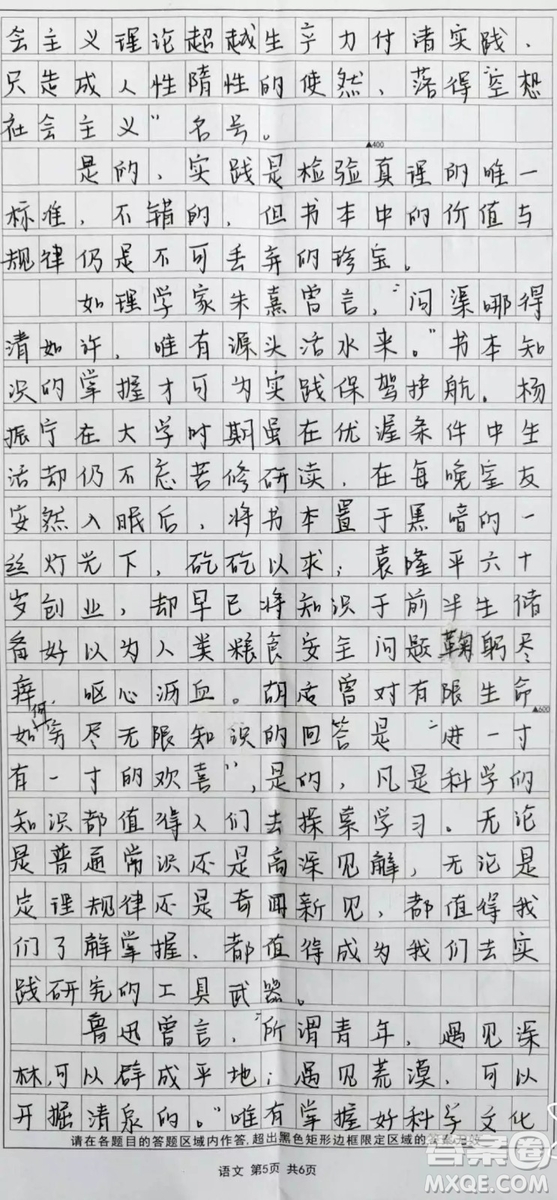 会主义理论超越生产力付清实践、
只造成人性隋性的使然，落得空想
社会主义”名号。
▲400
是的，实践是检验真理的唯一
标准，不错的，但书本中的价值与
规律仍是不可丢弃的珍宝。
如理学家朱熹曾言，“问渠哪得
清如许，唯有源头活水来。”书本知
识的掌握才可为实践保驾护航。杨
振宁在大学时期虽在优渥条件中生
活却仍不忘苦修研读，在每晚室友
安然入眠后，将书本置于黑暗的一
丝灯光下，矻矻以求；袁隆平六十
岁创业，却早已将知识于前半生储
备好以为人类粮食安全问题鞠躬尽
瘁，呕心沥血。胡适曾对有限生命
▲600
如何穷尽无限知识的回答是“进一寸
有一寸的欢喜”，是的，凡是科学的
知识都值得人们去探索学习。无论
是普通常识还是高深见解，无论是
定理规律还是奇闻新见，都值得我
们了解掌握、都值得成为我们去实
践研究的工具武器。
鲁迅曾言，“所谓青年，遇见深
林，可以辟成平地；遇见荒漠，可以
开掘清泉的。”唯有掌握好科学文化
请在各题目的答题区域内作答,超出黑色矩形边框限定区域的答案无效
语文 第5页 共6页
答案圈
MXQE.COM